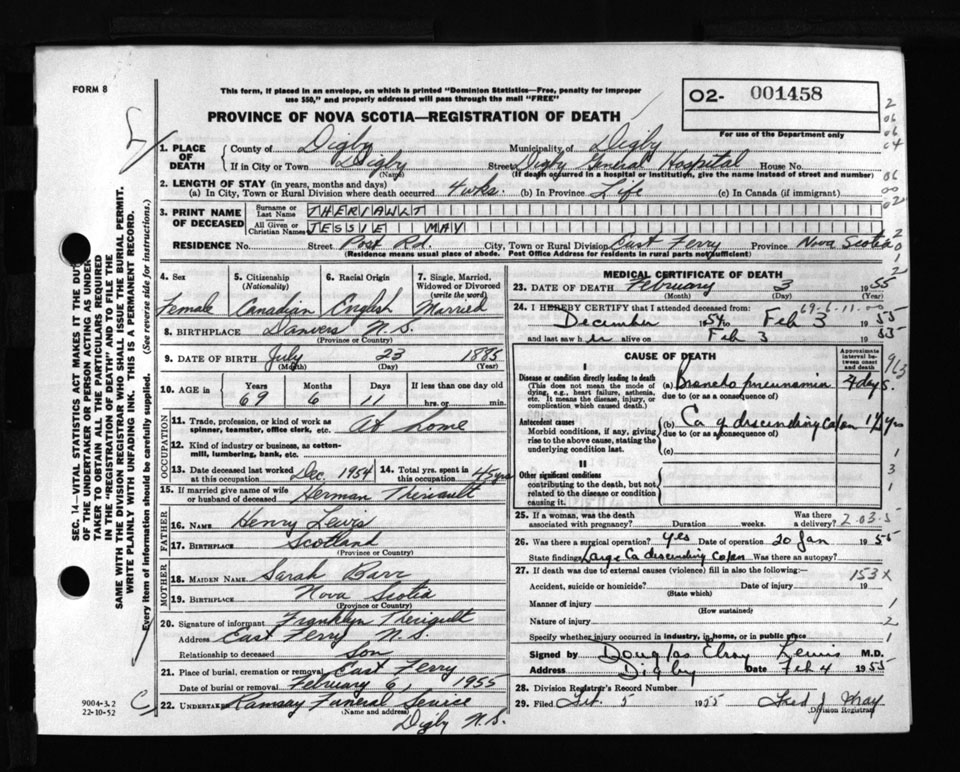 FORM 8
This form, if placed in an envelope, on which is printed "Dominion Statistics—Free, penalty for improper
use $50," and properly addressed will pass through the mail "FREE"
O2- 001458
For use of the Department only
PROVINCE OF NOVA SCOTIA—REGISTRATION OF DEATH
1. PLACE OF DEATH
County of Digby Municipality of Digby
If in City or Town Digby (Name) Street Digby General Hospital House No.
(If death occurred in a hospital or institution, give the name instead of street and number)
2. LENGTH OF STAY (in years, months and days)
(a) In City, Town or Rural Division where death occurred 4 wks. (b) In Province Life (c) In Canada (if immigrant)
3. PRINT NAME OF DECEASED
Surname or Last Name THERIAULT
All Given or Christian Names JESSIE MAY
RESIDENCE No. Street Post Rd. City, Town or Rural Division East Ferry Province Nova Scotia
(Residence means usual place of abode. Post Office Address for residents in rural parts not sufficient)
4. Sex
Female
5. Citizenship
(Nationality)
Canadian
6. Racial Origin
English
7. Single, Married, Widowed or Divorced
(write the word)
Married
8. BIRTHPLACE Danvers N.S.
(Province or Country)
9. DATE OF BIRTH July 23 1885
(Month) (Day) (Year)
10. AGE in Years Months Days If less than one day old
69 6 11 hrs. or min.
OCCUPATION
11. Trade, profession, or kind of work as spinner, teamster, office clerk, etc. At home
12. Kind of industry or business, as cotton-mill, lumbering, bank, etc.
13. Date deceased last worked at this occupation Dec. 1954
14. Total yrs. spent in this occupation 45 yrs
15. If married give name of wife or husband of deceased Herman Theriault
FATHER
16. NAME Henry Lewis
17. BIRTHPLACE Scotland
(Province or Country)
MOTHER
18. MAIDEN NAME Sarah Barr
19. BIRTHPLACE Nova Scotia
(Province or Country)
20. Signature of informant Franklyn Theriault
Address East Ferry N.S.
Relationship to deceased Son
21. Place of burial, cremation or removal East Ferry
Date of burial or removal February 6, 1955
22. UNDERTAKER Ramsay Funeral Service
(Name and address) Digby N.S.
MEDICAL CERTIFICATE OF DEATH
23. DATE OF DEATH February 3 1955
(Month) (Day) (Year)
69-6-11
24. I HEREBY CERTIFY that I attended deceased from:
December 1954 to Feb 3 1955
and last saw her alive on Feb 3 1955
CAUSE OF DEATH
Approximate interval between onset and death
I
Disease or condition directly leading to death
(This does not mean the mode of dying, e.g., heart failure, asthenia, etc. It means the disease, injury, or complication which caused death.)
(a) Broncho pneumonia 7 days.
due to (or as a consequence of)
Antecedent causes
Morbid conditions, if any, giving rise to the above cause, stating the underlying condition last.
(b) Ca of descending colon
due to (or as a consequence of)
(c)
II
Other significant conditions
contributing to the death, but not related to the disease or condition causing it.
25. If a woman, was the death associated with pregnancy? Duration weeks. Was there a delivery?
26. Was there a surgical operation? yes Date of operation 20 Jan 1955
State findings Large Ca descending Colon Was there an autopsy?
27. If death was due to external causes (violence) fill in also the following:—
153X
Accident, suicide or homicide? Date of injury 19
(State which)
Manner of injury
(How sustained)
Nature of injury
Specify whether injury occurred in industry, in home, or in public place
Signed by Douglas Elroy Lewis M.D.
Address Digby Date Feb 4 1955
28. Division Registrar's Record Number
29. Filed Feb. 5 1955 Fred J. May
Division Registrar
SEC. 14—VITAL STATISTICS ACT MAKES IT THE DUTY
OF THE UNDERTAKER OR PERSON ACTING AS UNDER-
TAKER TO OBTAIN ALL THE PARTICULARS REQUIRED
IN THE "REGISTRATION OF DEATH" AND TO FILE THE
SAME WITH THE DIVISION REGISTRAR WHO SHALL ISSUE THE BURIAL PERMIT.
WRITE PLAINLY WITH UNFADING INK. THIS IS A PERMANENT RECORD.
Every item of information should be carefully supplied. (See reverse side for instructions.)
9004-3.2
22-10-52
C